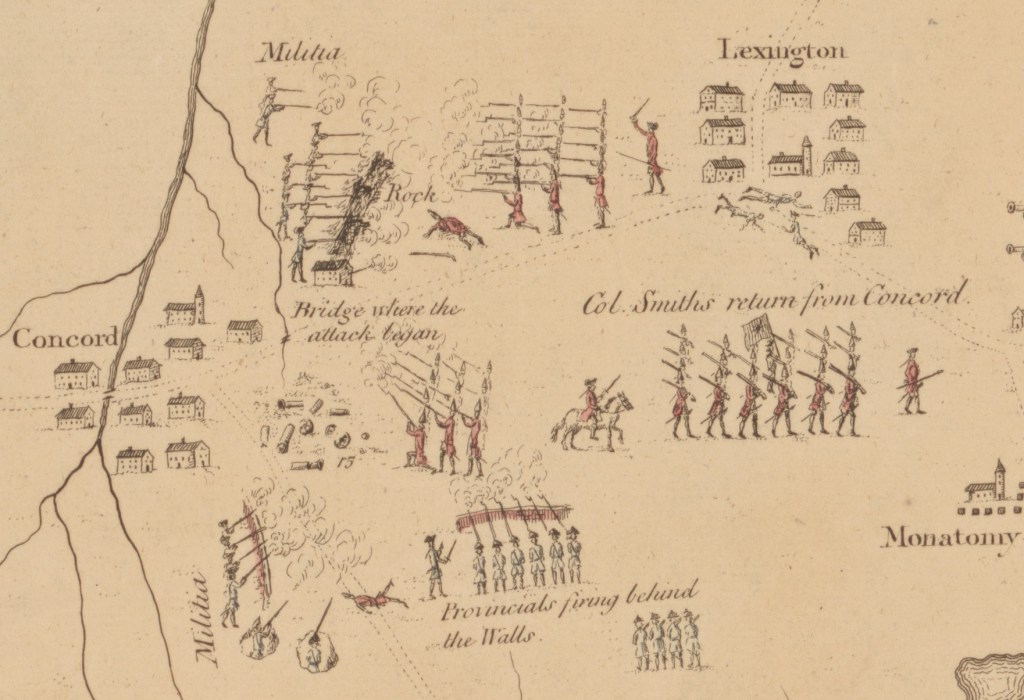 Militia
Lexington
Rock
Bridge where the
attack began
Col. Smiths return from Concord.
Concord
15
Monatomy
Militia
Provincials firing behind
the Walls.